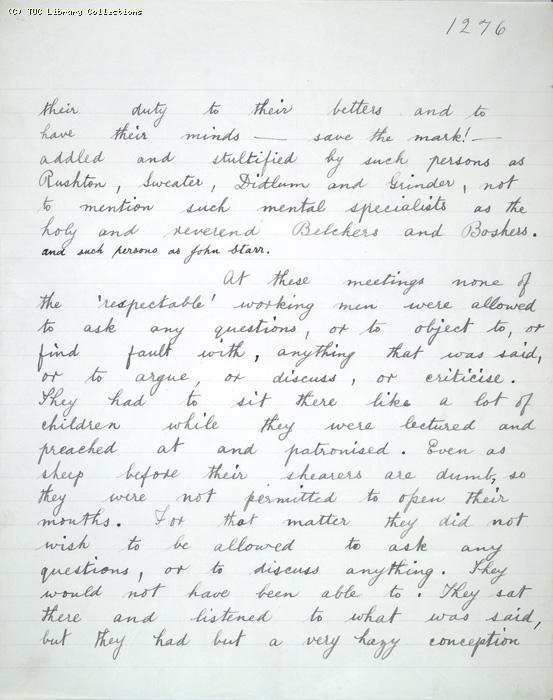 (C) TUC Library Collections
1276
their duty to their betters and to
have their minds — save the mark! —
addled and stultified by such persons as
Rushton, Sweater, Didlum and Grinder, not
to mention such mental specialists as the
holy and reverend Belchers and Boshers.
and such persons as John Starr.
At these meetings none of
the 'respectable' working men were allowed
to ask any questions, or to object to, or
find fault with, anything that was said,
or to argue, or discuss, or criticise.
They had to sit there like a lot of
children while they were lectured and
preached at and patronised. Even as
sheep before their shearers are dumb, so
they were not permitted to open their
mouths. For that matter they did not
wish to be allowed to ask any
questions, or to discuss anything. They
would not have been able to. They sat
there and listened to what was said,
but they had but a very hazy conception